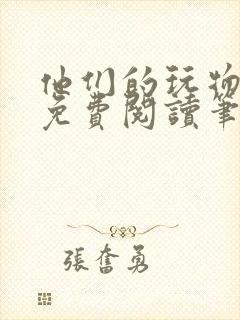 他们的玩物
免費閱讀筆
張奮勇